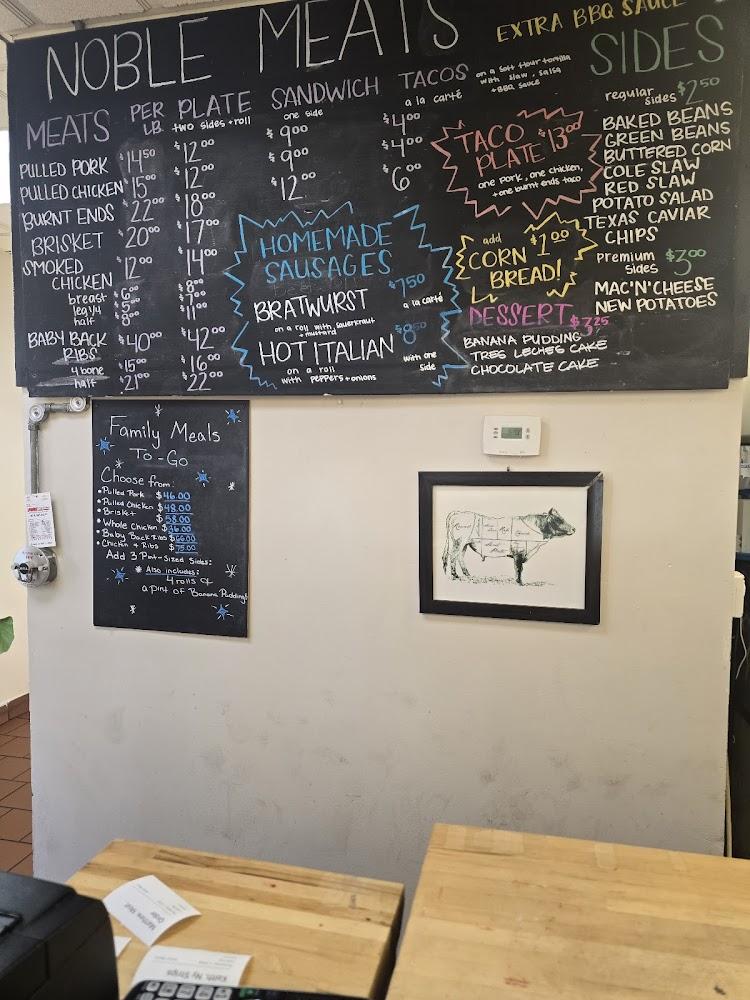 NOBLE MEATS
EXTRA BBQ SAUCE
MEATS
PER LB.
PLATE
two sides + roll
SANDWICH
one side
TACOS
a la carté
on a soft flour tortilla
with slaw, salsa
+ BBQ sauce
PULLED PORK $14.50 $12.00 $9.00 $4.00
PULLED CHICKEN $15.00 $12.00 $9.00 $4.00
BURNT ENDS $22.00 $18.00 $12.00 $6.00
BRISKET $20.00 $17.00
SMOKED CHICKEN $12.00 $14.00
breast $6.00 $8.00
leg 1/4 $5.00 $7.00
half $8.00 $11.00
BABY BACK RIBS $40.00 $42.00
4 bone $15.00 $16.00
half $21.00 $22.00
HOMEMADE
SAUSAGES
BRATWURST $7.50
a la carté
on a roll with sauerkraut
+ mustard
HOT ITALIAN $8.50
on a roll
with peppers + onions
with one
side
TACO
PLATE $13.00
one pork, one chicken,
+ one burnt ends taco
add
CORN $1.00
BREAD!
DESSERT $3.25
BANANA PUDDING
TRES LECHES CAKE
CHOCOLATE CAKE
SIDES
regular
sides $2.50
BAKED BEANS
GREEN BEANS
BUTTERED CORN
COLE SLAW
RED SLAW
POTATO SALAD
TEXAS CAVIAR
CHIPS
premium
sides $3.00
MAC'N'CHEESE
NEW POTATOES
Family Meals
To-Go
Choose from:
• Pulled Pork $46.00
• Pulled Chicken $48.00
• Brisket $58.00
• Whole Chicken $36.00
• Baby Back Ribs $66.00
• Chicken + Ribs $75.00
Add 3 Pint-Sized Sides:
* Also includes:
4 rolls &
a pint of Banana Pudding!
Matthew, Meat
Order
Keith, Ny Strips